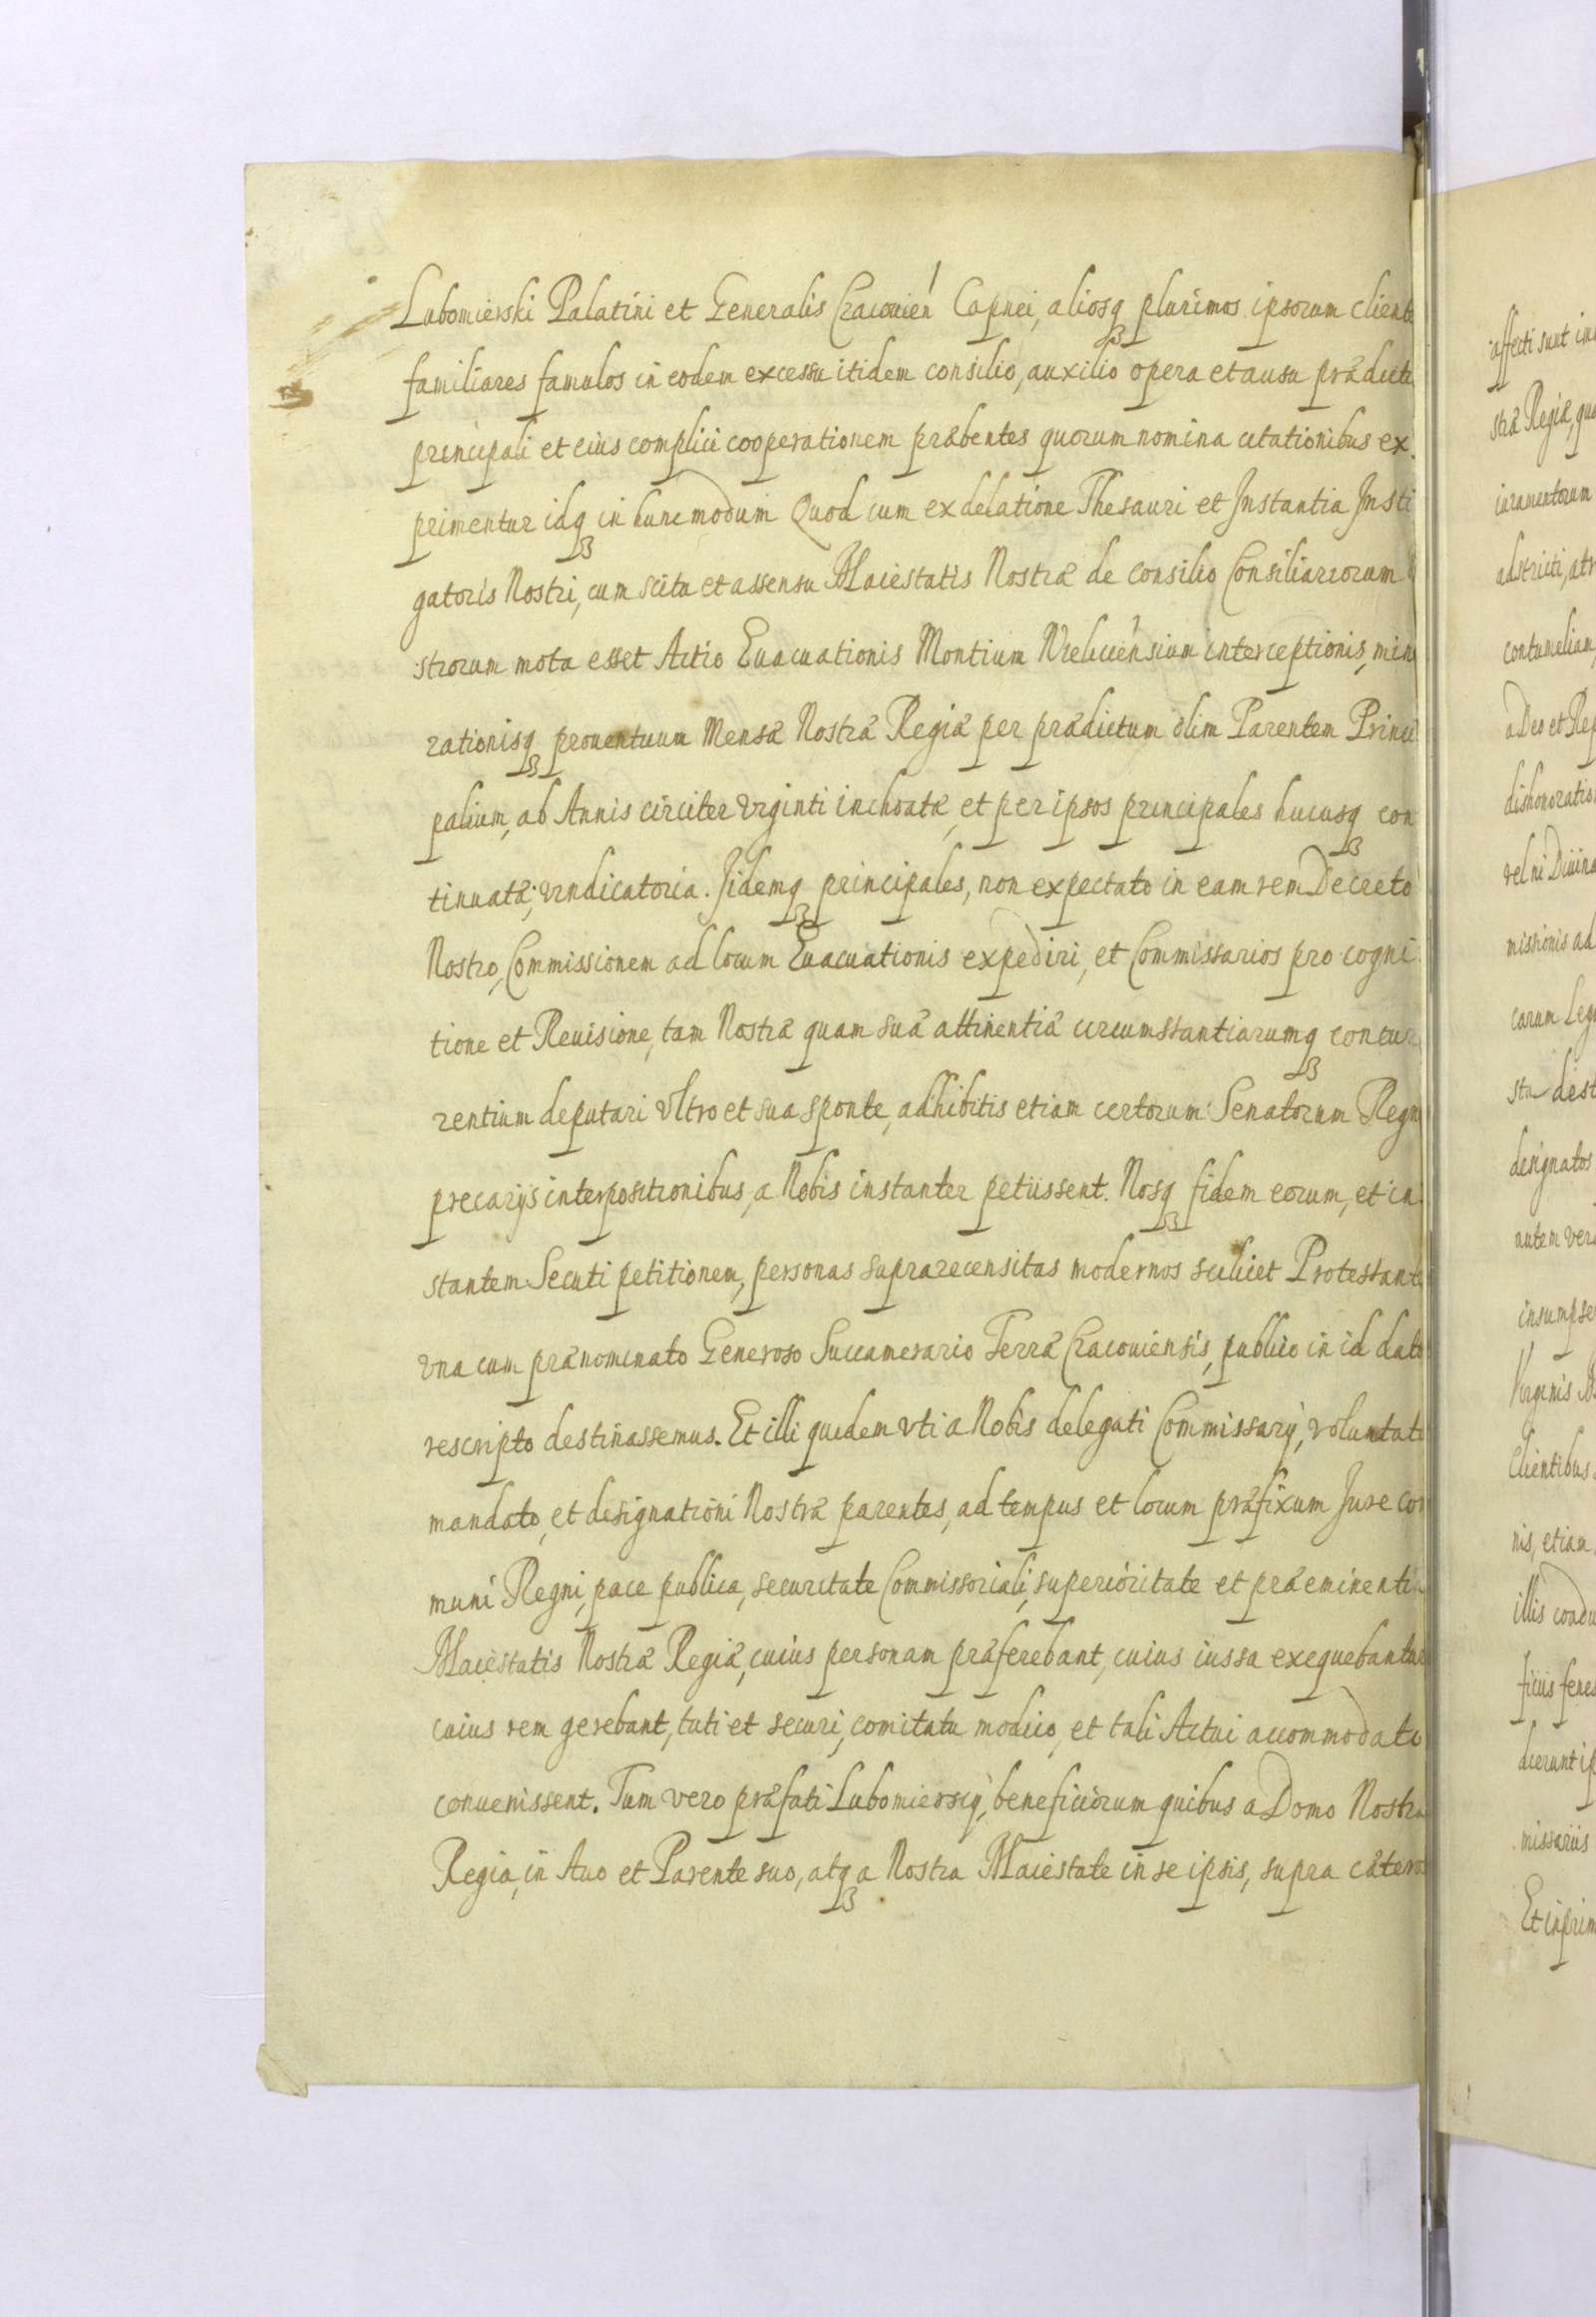 Lubomierski Palatini et Generalis Cracouien Capnei, aliosq plurimos ipsorum cliente
familiares famulos in eodem excessu itidem consilio, auxilio opera et ausu prædicte
principali et eius complici cooperationem præbentes quorum nomina citationibus ex
primentur idq in hunc modum Quod cum ex delatione Thesauri et Instantia Insti
gatoris Nostri, cum scitu et assensu Maiestatis Nostræ de consilio Consiliariorum
strorum mota esset Actio Euacuationis Montium Vieliciensium interceptionis, min
rationisq prouentuum Mensæ Nostræ Regiæ per prædictum olim Parentem Princi
palium, ab Annis circiter viginti inchoatæ, et per ipsos principales hucusq con
tinuatæ, vindicatoria. Iidemq principales, non expectato in eam rem Decreto
Nostro, Commissionem ad locum Euacuationis expediri, et Commissarios pro cogni
tione et Reuisione, tam Nostræ quam suæ attinentiæ circumstantiarumq concur
rentium deputari vltro et sua sponte, adhibitis etiam certorum Senatorum Regn
precarijs interpositionibus, a Nobis instanter petiissent. Nosq fidem eorum, et in
stantem Secuti petitionem, personas suprarecensitas modernos scilicet Protestante
vna cum prænominato Generoso Succamerario Terræ Cracouiensis, publico in id dato
rescripto destinassemus. Et illi quidem vti a Nobis delegati Commissarij, voluntati
mandato, et designationi Nostræ parentes, ad tempus et locum præfixum Jure com
muni Regni, pace publica, securitate Commissoriali, superioritate et præeminentia
Maiestatis Nostræ Regiæ, cuius personam præferebant, cuius iussa exequebantur
cuius rem gerebant, tuti et securi, comitatu modico, et tali Actui accommodato
conuenissent. Tum vero præfati Lubomierscij, beneficiorum quibus a Domo Nostra
Regia, in Auo et Parente suo, atq a Nostra Maiestate in se ipsis, supra cæteros
affecti sunt
stræ Regiæ,
iuramentorum
adstricti,
contumeliam
a Deo et
vel ni
missionis ad
designatos
autem
Clientibus
nis, etiam
illis
missariis